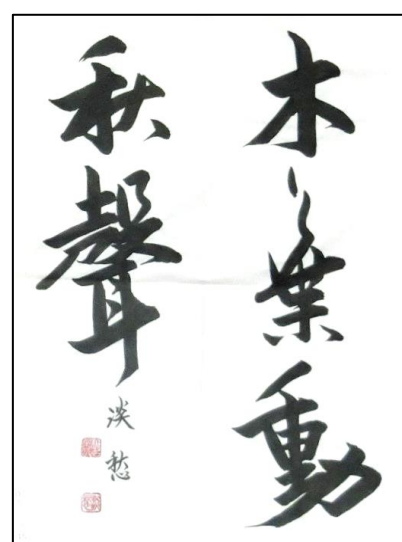 木葉動
秋聲
淡愁